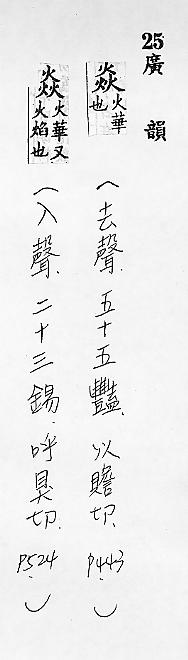 25廣韻
燚火華也(去聲.五十五豔.以贍切.P.443.)
燚火華又火焰也(入聲.二十三錫.呼臭切.P.524.)